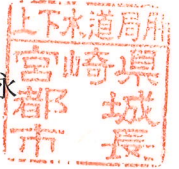 上下水道局用
宮崎県
都城
市長